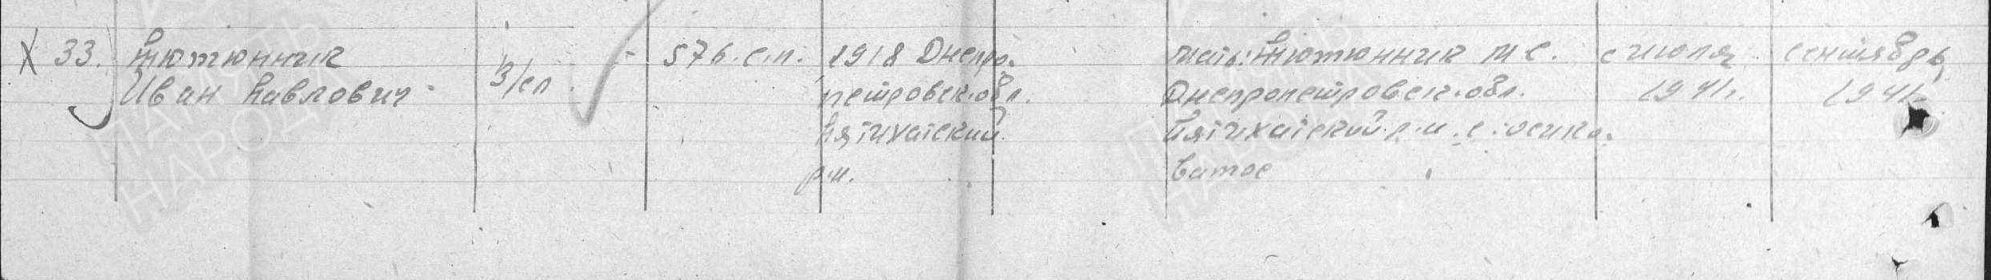 X 33. Тютюнник
Иван Павлович
3/сл
576. с.п.
1918 Днепро-
петровск. обл.
Пятихатский
р-н.
мать: Тютюнник М С.
Днепропетровск. обл.
Пятихатский р-н. с. Осико-
ватое
с июля
1941г.
сентябрь
1941
ПАМЯТЬ
НАРОДА